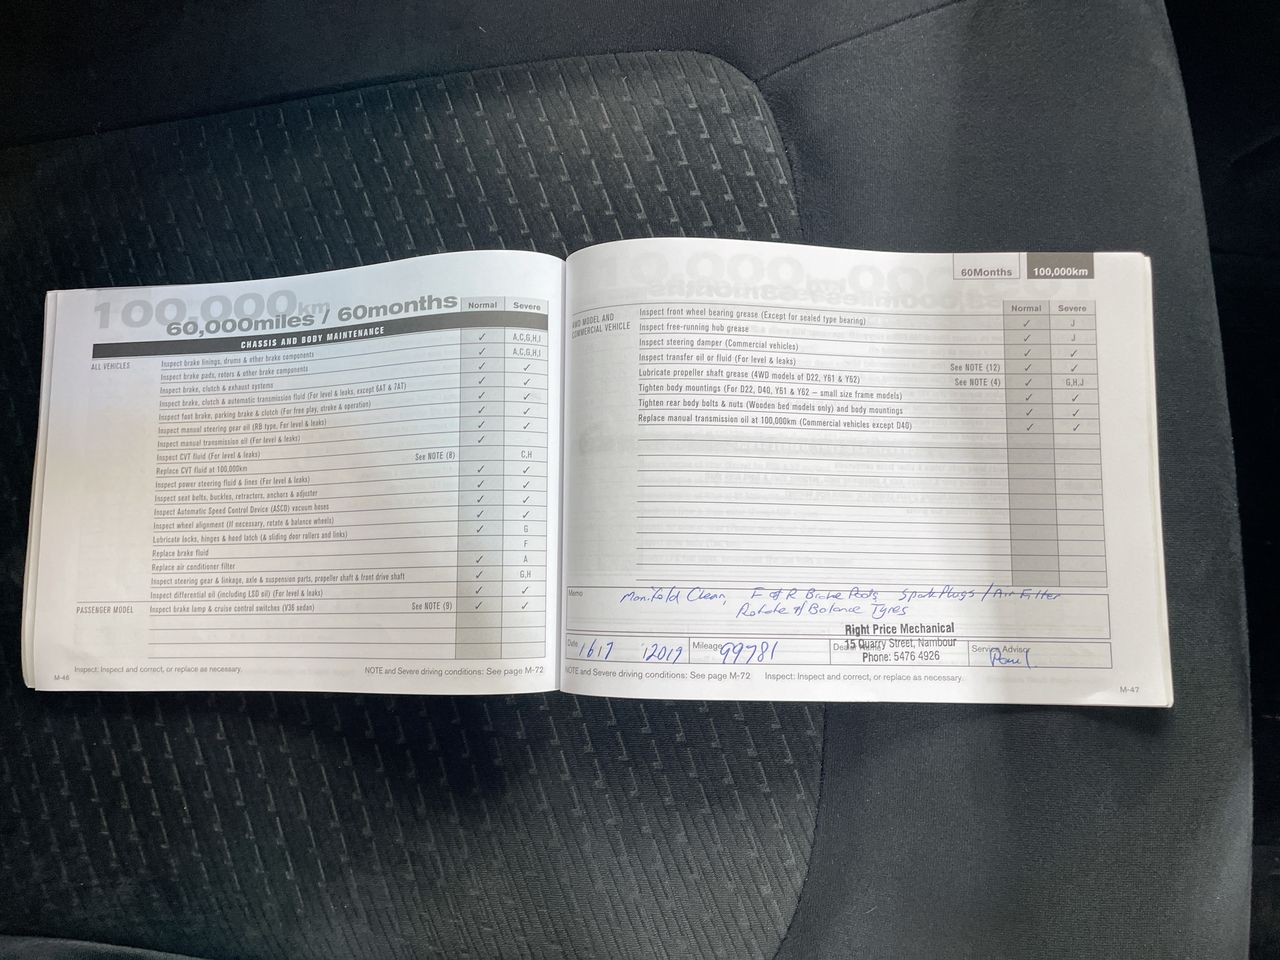 100,000km
60,000miles / 60months
Normal Severe
CHASSIS AND BODY MAINTENANCE
ALL VEHICLES
Inspect brake linings, drums & other brake components ✓ A,C,G,H,I
Inspect brake pads, rotors & other brake components ✓ A,C,G,H,I
Inspect brake, clutch & exhaust systems ✓ ✓
Inspect brake, clutch & automatic transmission fluid (For level & leaks, except 6AT & 7AT) ✓ ✓
Inspect foot brake, parking brake & clutch (For free play, stroke & operation) ✓ ✓
Inspect manual steering gear oil (RB type, For level & leaks) ✓ ✓
Inspect manual transmission oil (For level & leaks) ✓ ✓
Inspect CVT fluid (For level & leaks) See NOTE (8) ✓
Replace CVT fluid at 100,000km C,H
Inspect power steering fluid & lines (For level & leaks) ✓ ✓
Inspect seat belts, buckles, retractors, anchors & adjuster ✓ ✓
Inspect Automatic Speed Control Device (ASCD) vacuum hoses ✓ ✓
Inspect wheel alignment (If necessary, rotate & balance wheels) ✓ ✓
Lubricate locks, hinges & hood latch (& sliding door rollers and links) ✓ G
Replace brake fluid F
Replace air conditioner filter ✓ A
Inspect steering gear & linkage, axle & suspension parts, propeller shaft & front drive shaft ✓ G,H
Inspect differential oil (including LSD oil) (For level & leaks) ✓ ✓
PASSENGER MODEL Inspect brake lamp & cruise control switches (V36 sedan) See NOTE (9) ✓ ✓
Inspect: Inspect and correct, or replace as necessary.
NOTE and Severe driving conditions: See page M-72
M-46
60Months 100,000km
Normal Severe
4WD MODEL AND COMMERCIAL VEHICLE
Inspect front wheel bearing grease (Except for sealed type bearing) ✓ J
Inspect free-running hub grease ✓ J
Inspect steering damper (Commercial vehicles) ✓ ✓
Inspect transfer oil or fluid (For level & leaks) See NOTE (12) ✓ ✓
Lubricate propeller shaft grease (4WD models of D22, Y61 & Y62) See NOTE (4) ✓ G,H,J
Tighten body mountings (For D22, D40, Y61 & Y62 – small size frame models) ✓ ✓
Tighten rear body bolts & nuts (Wooden bed models only) and body mountings ✓ ✓
Replace manual transmission oil at 100,000km (Commercial vehicles except D40) ✓ ✓
Memo
Manifold Clean, F & R Brake Pads Spark Plugs / Air Filter
Rotate & Balance Tyres
Right Price Mechanical
15 Quarry Street, Nambour
Phone: 5476 4926
Date 16/7 /2019 Mileage 99781
Service Advisor
Paul
NOTE and Severe driving conditions: See page M-72
Inspect: Inspect and correct, or replace as necessary.
M-47